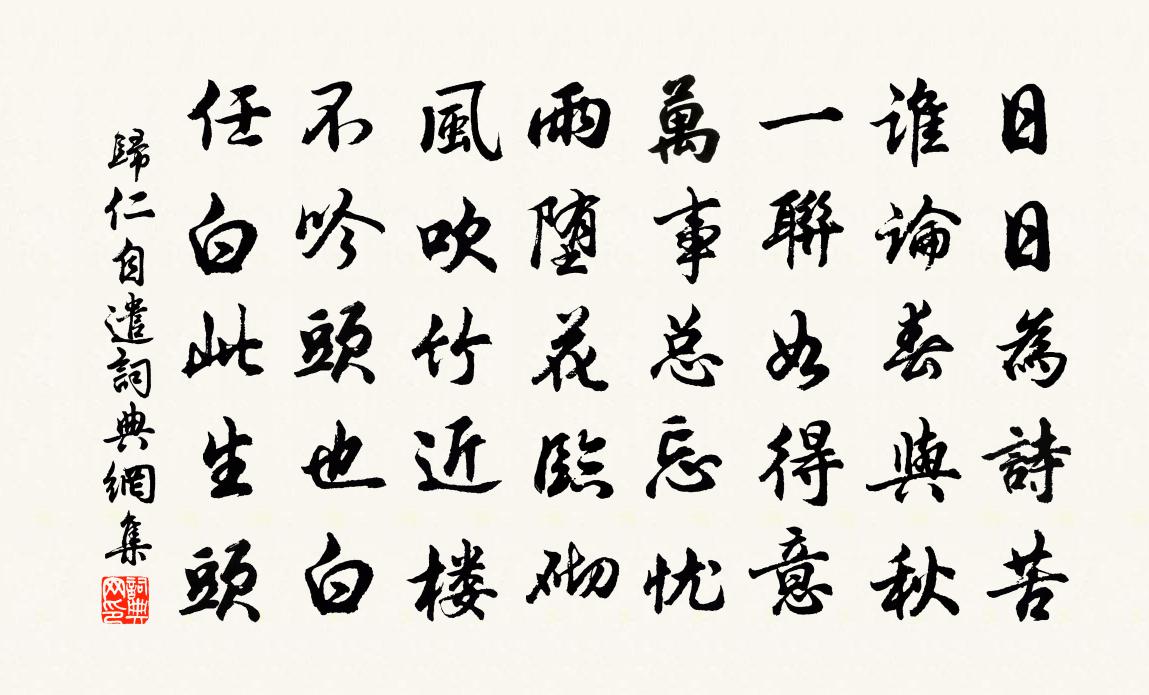 日日為詩苦
誰論春與秋
一聯如得意
萬事总忘忧
雨堕花臨砌
風吹竹近楼
不吟頭也白
任白此生頭
歸仁自遣詞典網集
詞典网印